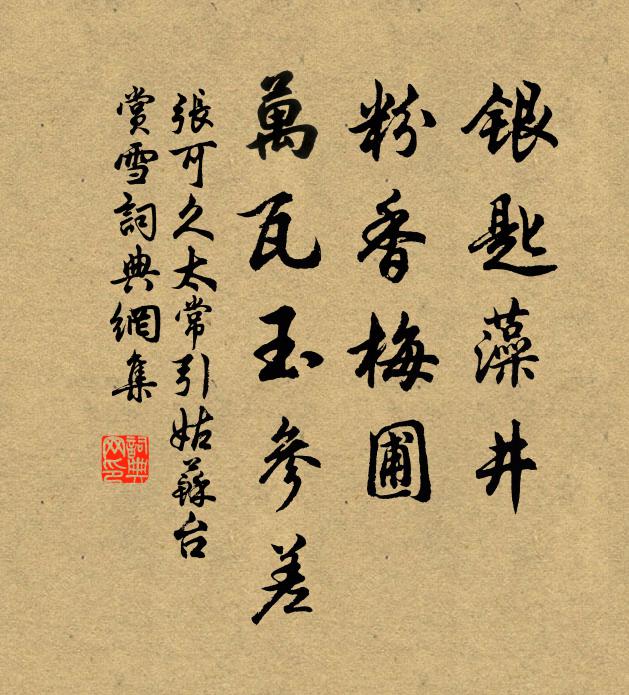 銀匙藻井
粉香梅圃
萬瓦玉參差
張可久太常引姑蘇台
賞雪詞典網集
詞典網印